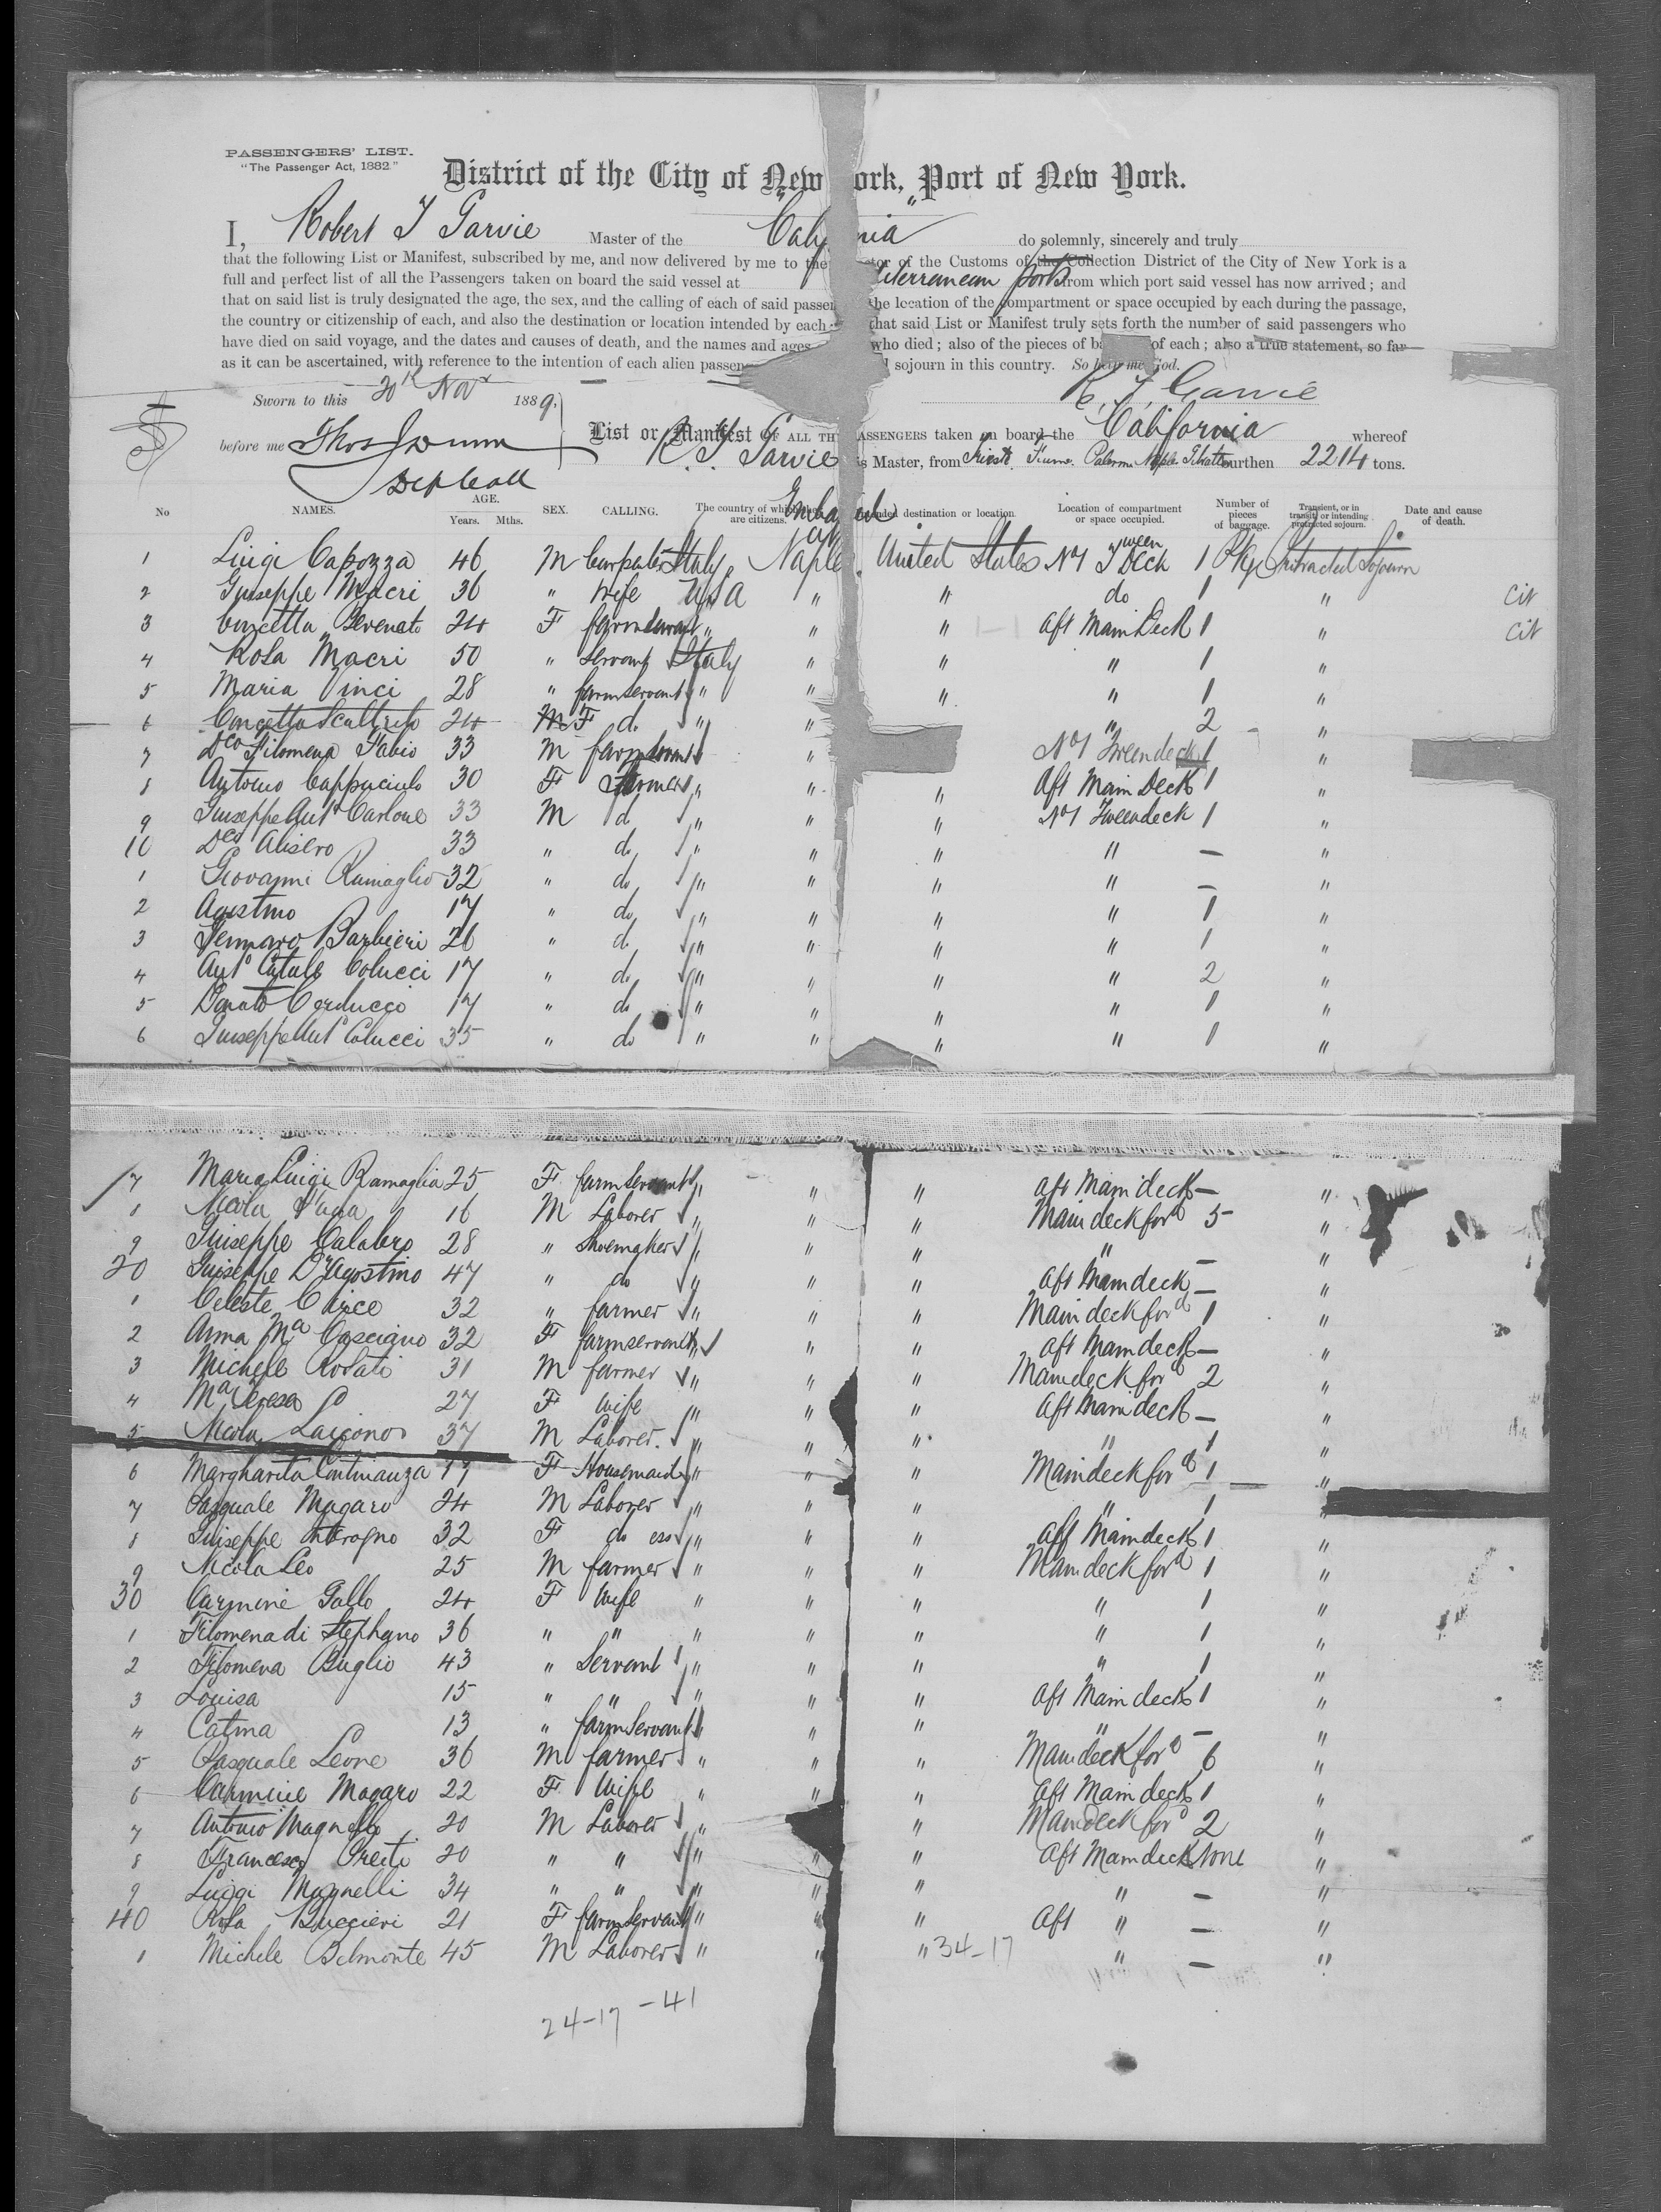 PASSENGERS' LIST.
"The Passenger Act, 1882."
District of the City of New ork, Port of New York.
I, Robert T Garvie Master of the California do solemnly, sincerely and truly
that the following List or Manifest, subscribed by me, and now delivered by me to the of the Customs of the Collection District of the City of New York is a
full and perfect list of all the Passengers taken on board the said vessel at Mediterranean ports from which port said vessel has now arrived; and
that on said list is truly designated the age, the sex, and the calling of each of said passen the location of the compartment or space occupied by each during the passage,
the country or citizenship of each, and also the destination or location intended by each that said List or Manifest truly sets forth the number of said passengers who
have died on said voyage, and the dates and causes of death, and the names and ages who died; also of the pieces of ba of each; also a true statement, so far
as it can be ascertained, with reference to the intention of each alien passen sojourn in this country. So help me God.
Sworn to this 20th Nov 1889, R. T. Garvie
before me Thos Dunn List or Manifest OF ALL THE PASSENGERS taken on board the California whereof
Dep Coll R. T. Garvie is Master, from Trieste Fiume Palermo Naples Gibraltar burthen 2214 tons.
No NAMES. AGE. Years. Mths. SEX. CALLING. The country of which they are citizens. Embarked at Intended destination or location. Location of compartment or space occupied. Number of pieces of baggage. Transient, or in transit, or intending protracted sojourn. Date and cause of death.
1 Luigi Capozza 46 M Carpenter Italy Naples United States No 1 Tween Deck 1 Pkg Protracted Sojourn
2 Guiseppe Macri 36 " Wife USA " " do 1 " Cit
3 24 F farm servant " " " Aft Main Deck 1 " Cit
4 Rosa Macri 50 " Servant Italy " " " 1 "
5 Maria Vinci 28 " farm servant " " " " 1 "
6 Concetta 24 M F do " " " 2 "
7 Dco Filomena Fabio 33 M farm servant " No 1 Tweendeck 1
8 Antonio 30 F farmer " " " Aft Main Deck 1 "
9 Guiseppe Ant Carlone 33 M do " " " No 1 Tweendeck 1 "
10 Dco Alisero 33 " do " " " " — "
1 Giovanni Ramaglio 32 " do " " " " — "
2 Agostino 17 " do " " " " 1 "
3 Gennaro Barbieri 26 " do " " " " 1 "
4 Anto Catale Colucci 17 " do " " " " 2 "
5 Donato Carducco 17 " do " " " " 1 "
6 Guiseppe Anto Colucci 35 " do " " " " 1 "
7 Maria Luigi Ramaglia 25 F farm servant " " " Aft Main deck — "
8 Nicola 16 M Laborer " " " Main deck ford 5 "
9 Guiseppe Calabro 28 " Shoemaker " " " " — "
20 Guiseppe D'Agostino 47 " do " " " Aft Main deck — "
1 Celeste Cirice 32 " farmer " " " Main deck ford 1 "
2 Anna Ma Casciano 32 F farm servant " " " Aft Main deck — "
3 Michele Rosati 31 M farmer " " " Main deck ford 2 "
4 Ma Teresa 27 F Wife " " " Aft Main deck — "
5 Nicola 37 M Laborer. " " " " 1 "
6 Margharita Continanza 17 F Housemaid " " " Main deck ford 1 "
7 Pasquale Magaro 24 M Laborer " " " " 1 "
8 Guiseppe 32 F do ess " " " Aft Main deck 1 "
9 Nicola Leo 25 M farmer " " " Main deck ford 1 "
30 Carmine Gallo 24 F Wife " " " " 1 "
1 Filomena di Stephano 36 " " " " " " 1 "
2 Filomena Buglio 43 " Servant " " " " 1 "
3 Louisa 15 " " " " " Aft Main deck 1 "
4 Catina 13 " farm servant " " " " — "
5 Pasquale Leone 36 M farmer " " " Main deck ford 6 "
6 Carmine Magaro 22 F Wife " " " Aft Main deck 1 "
7 Antonio Magnelli 20 M Laborer " " Main deck ford 2 "
8 Francesco Preiti 20 " " " " " Aft Main deck None "
9 Luigi Magnelli 34 " " " " " " — "
40 Rosa Buccieri 21 F farm servant " " " Aft " — "
1 Michele Belmonte 45 M Laborer " " " 34-17 " — "
24-17 -41